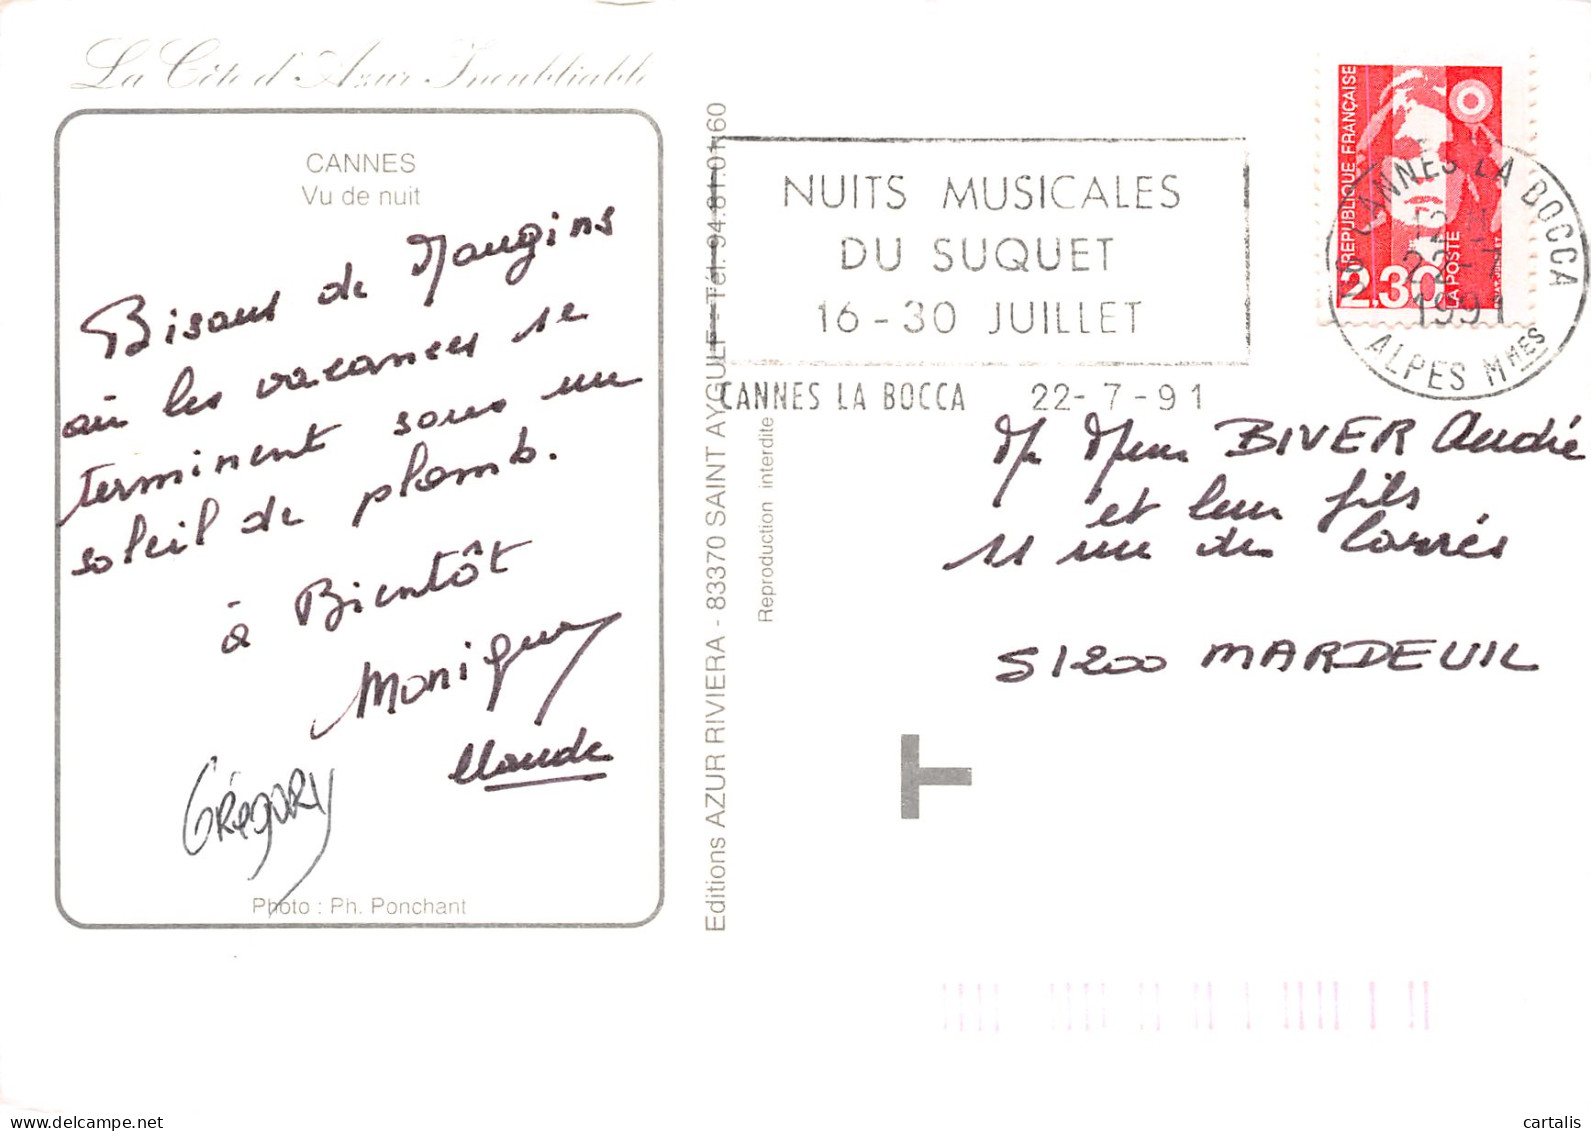 La Côte d'Azur Inoubliable
CANNES
Vu de nuit
Bisous de Mougins
où les vacances se
terminent sous un
soleil de plomb.
à Bientôt
Monique
Claude
GRégORY
Photo : Ph. Ponchant
Editions AZUR RIVIERA - 83370 SAINT AYGULF - Tél. 94.81.01.60
Reproduction interdite
NUITS MUSICALES
DU SUQUET
16 - 30 JUILLET
CANNES LA BOCCA 22-7-91
RÉPUBLIQUE FRANÇAISE
2.30
LA POSTE
CANNES LA BOCCA
22-7
1991
ALPES MMES
Mr Mme BIVER André
et leur fils
11 rue des Carrés
51200 MARDEUIL
T
www.delcampe.net
cartalis